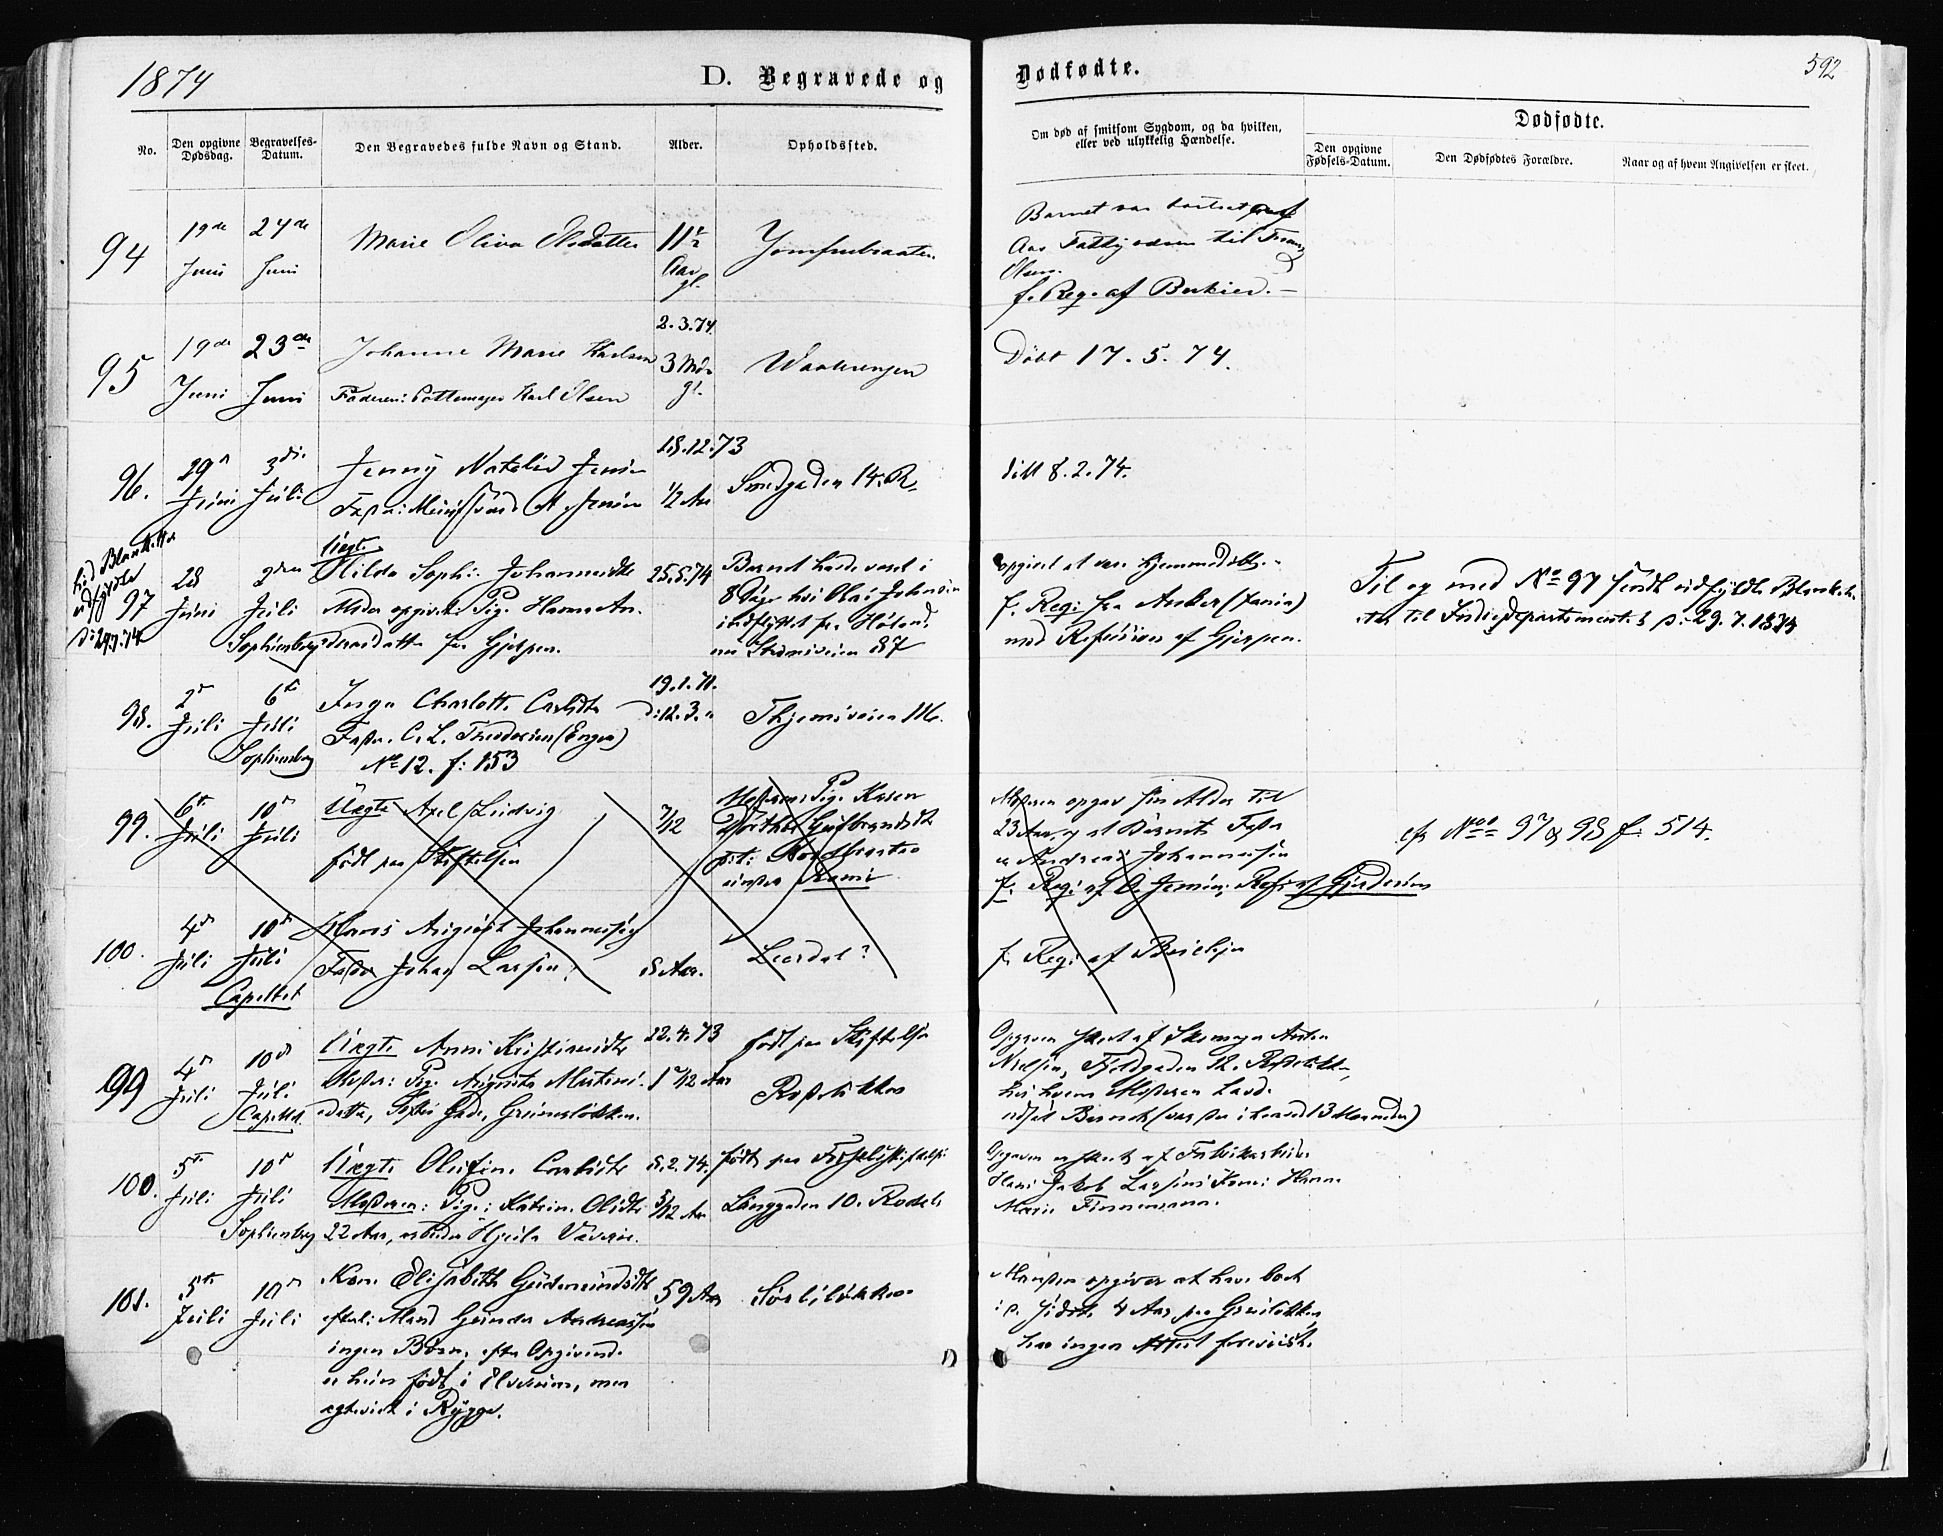 1874
D. Begravede og
Dødfødte.
592
No.
Den opgivne Dødsdag.
Begravelses-Datum.
Den Begravedes fulde Navn og Stand.
Alder.
Opholdssted.
Om død af smitsom Sygdom, og da hvilken,
eller ved ulykkelig Hændelse.
Dødfødte.
Den opgivne Fødsels-Datum.
Den Dødfødtes Forældre.
Naar og af hvem Angivelsen er skeet.
94
19de Juni
24de Juni
Marie Oliva Olsdatter
11½ Aar gl.
Jomfrubraaten
Barnet var bortsat af
Aas Fattigvæsen til Frantz
Olsen.
f. Reg. af
95
19de Juni
23de Juni
Johanne Marie Karlsen
Faderen: Pottemager Karl Olsen
2.3.74.
3 Mdr gl.
Waalerengen
Døbt 17.5.74.
96.
29 Juni
3die Juli
Jenny Natalie Jensen
18.12.73
½ Aar
Smedgaden 14. R.
ditt 8.2.74.
hid Blanketter
udfyldte
d: 29.7.74
97
28 Juni
2den Juli
Sophienberg
Uægte
Hilda Sophie Johannesdtr
Moder opgivet: Pige Hanna An-
dreasdatter fra Gjerpen.
25.5.74
Barnet havde været i
8 Dage hos Olai Johnsen
indflyttet fra Høland.
nu Strømsveien 87
opgivet at være hjemmedøbt.
f. Reg: fra Anker
med Refusion af Gjerpen.
Til og med No 97 sendt udfyldte Blanket-
ter til Indredepartementet d. 29.7.1874
98.
2 Juli
6te Juli
Sophienberg
Inga Charlotte Carlsdtr
Fader. C. L. Theodorsen (Enger)
No 12. f: 153
19.1.71.
d: 12.3.
Thjemsveien 16.
99.
6te Juli
10 Juli
Uægte Axel Ludvig
født paa Stiftelsen
7/12
Moderen: Pige Karen
Dorthea Gulbrandsdtr
Moderen opgav sin Alder til
23 Aar, og at Barnets Fader
er Andreas Johannesen
f. Reg: af O. Jensen; Ref: af Gjerdrum
cfr Noo 97 & 98 f. 514.
100.
4 Juli
10 Juli
Capellet
Hans August Johannesen
Fader Johan Larsen
8 Aar.
Leerdal?
f. Reg: af
99
4 Juli
10 Juli
Capellet
Uægte Anna Kristiansdtr
Moder: Pige Augusta Mortens-
datter, Sofies Gade, Grünerløkken.
22.4.73
1 2/12 Aar
født paa Stiftelsen
Rodeløkken
Opgaven skeet af Skomager Anton
Nielsen, Fjeldgaden 12. Rodeløkken,
hos hvem Moderen havde
udsat Barnet (var der i henved 13 Maaneder)
100.
5te Juli
10 Juli
Sophienberg
Uægte Olufine Carlsdtr
Moderen: Pige: Katrine Olsdtr
22 Aar, arbeider Hjula Væveri.
8.2.74.
5/12 Aar
født paa Fødselsstiftelse
Langgaden 10. Rodel:
Opgaven er skeet af Fabrikarbeider
Hans Jakob Larsens Kone: Hanna
Marie Finnemann.
101.
5te Juli
10 Juli
Kone Elisabeth Gudmundsdtr
efterl: Mand Gunder Andreassen
ingen Børn, efter Opgivende
er hun født i Elverum, men
ægteviet i Rygge.
59 Aar
Sørliløkken
Manden opgiver at have boet
i d. sidste 4 Aar paa Grünløkken,
har ingen Attest foreviist.